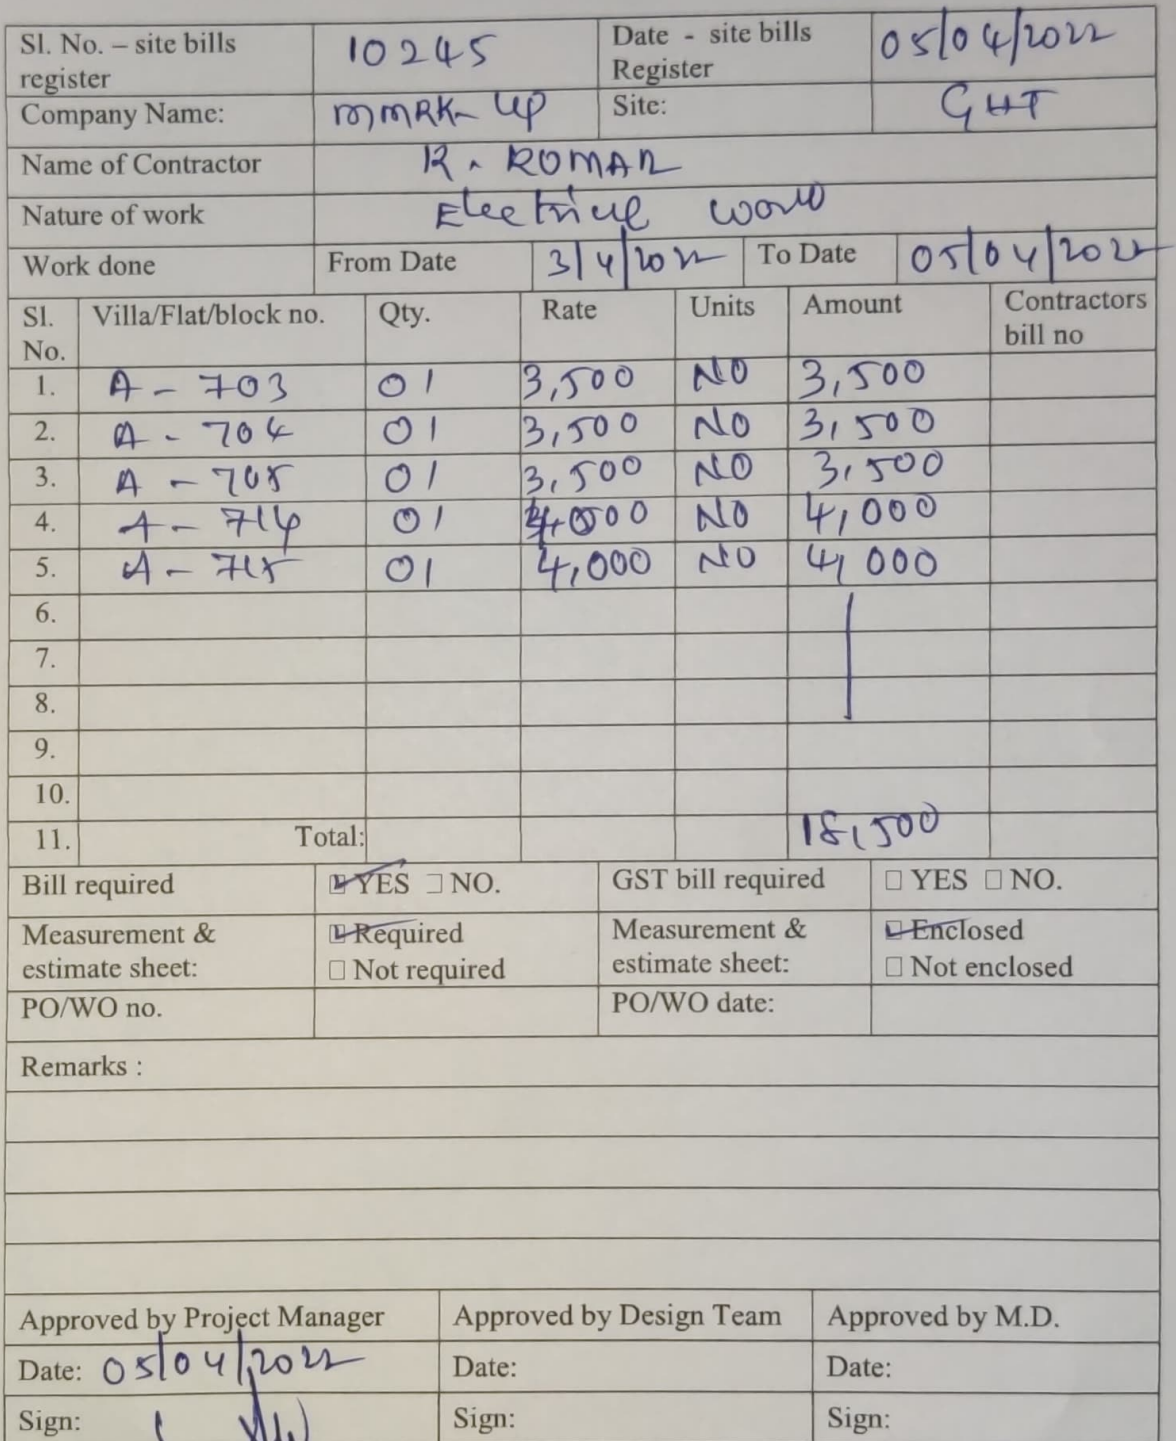 Sl. No. – site bills register 10245 Date - site bills Register 05/04/2022
Company Name: MMRK-UP Site: GHT
Name of Contractor R. ROMAN
Nature of work Electrical work
Work done From Date 3/4/2022 To Date 05/04/2022
Sl. No. Villa/Flat/block no. Qty. Rate Units Amount Contractors bill no
1. A - 703 01 3,500 NO 3,500
2. A - 704 01 3,500 NO 3,500
3. A - 705 01 3,500 NO 3,500
4. A - 714 01 4,000 NO 4,000
5. A - 715 01 4,000 NO 4,000
6.
7.
8.
9.
10.
11. Total: 18,500
Bill required YES NO. GST bill required YES NO.
Measurement & estimate sheet: Required Not required Measurement & estimate sheet: Enclosed Not enclosed
PO/WO no. PO/WO date:
Remarks :
Approved by Project Manager Approved by Design Team Approved by M.D.
Date: 05/04/2022 Date: Date:
Sign: Sign: Sign: